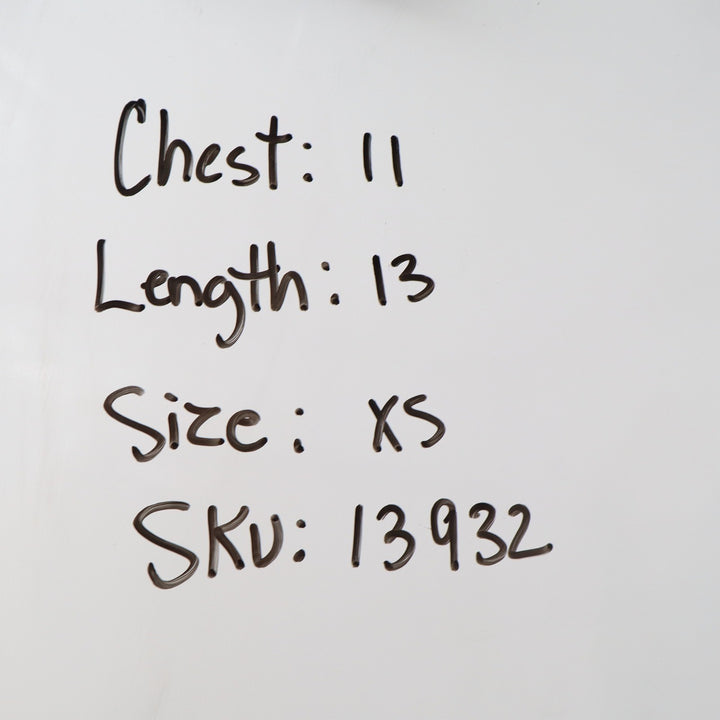 Chest: 11
Length: 13
Size: XS
SKU: 13932